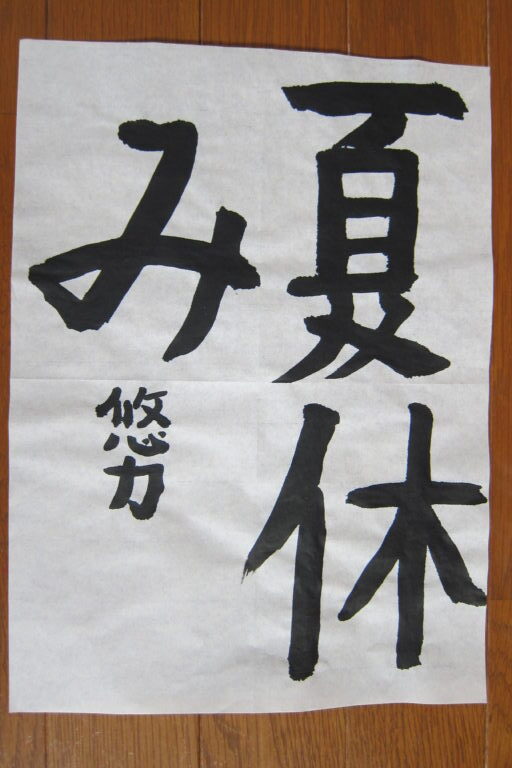 夏休
み
悠力